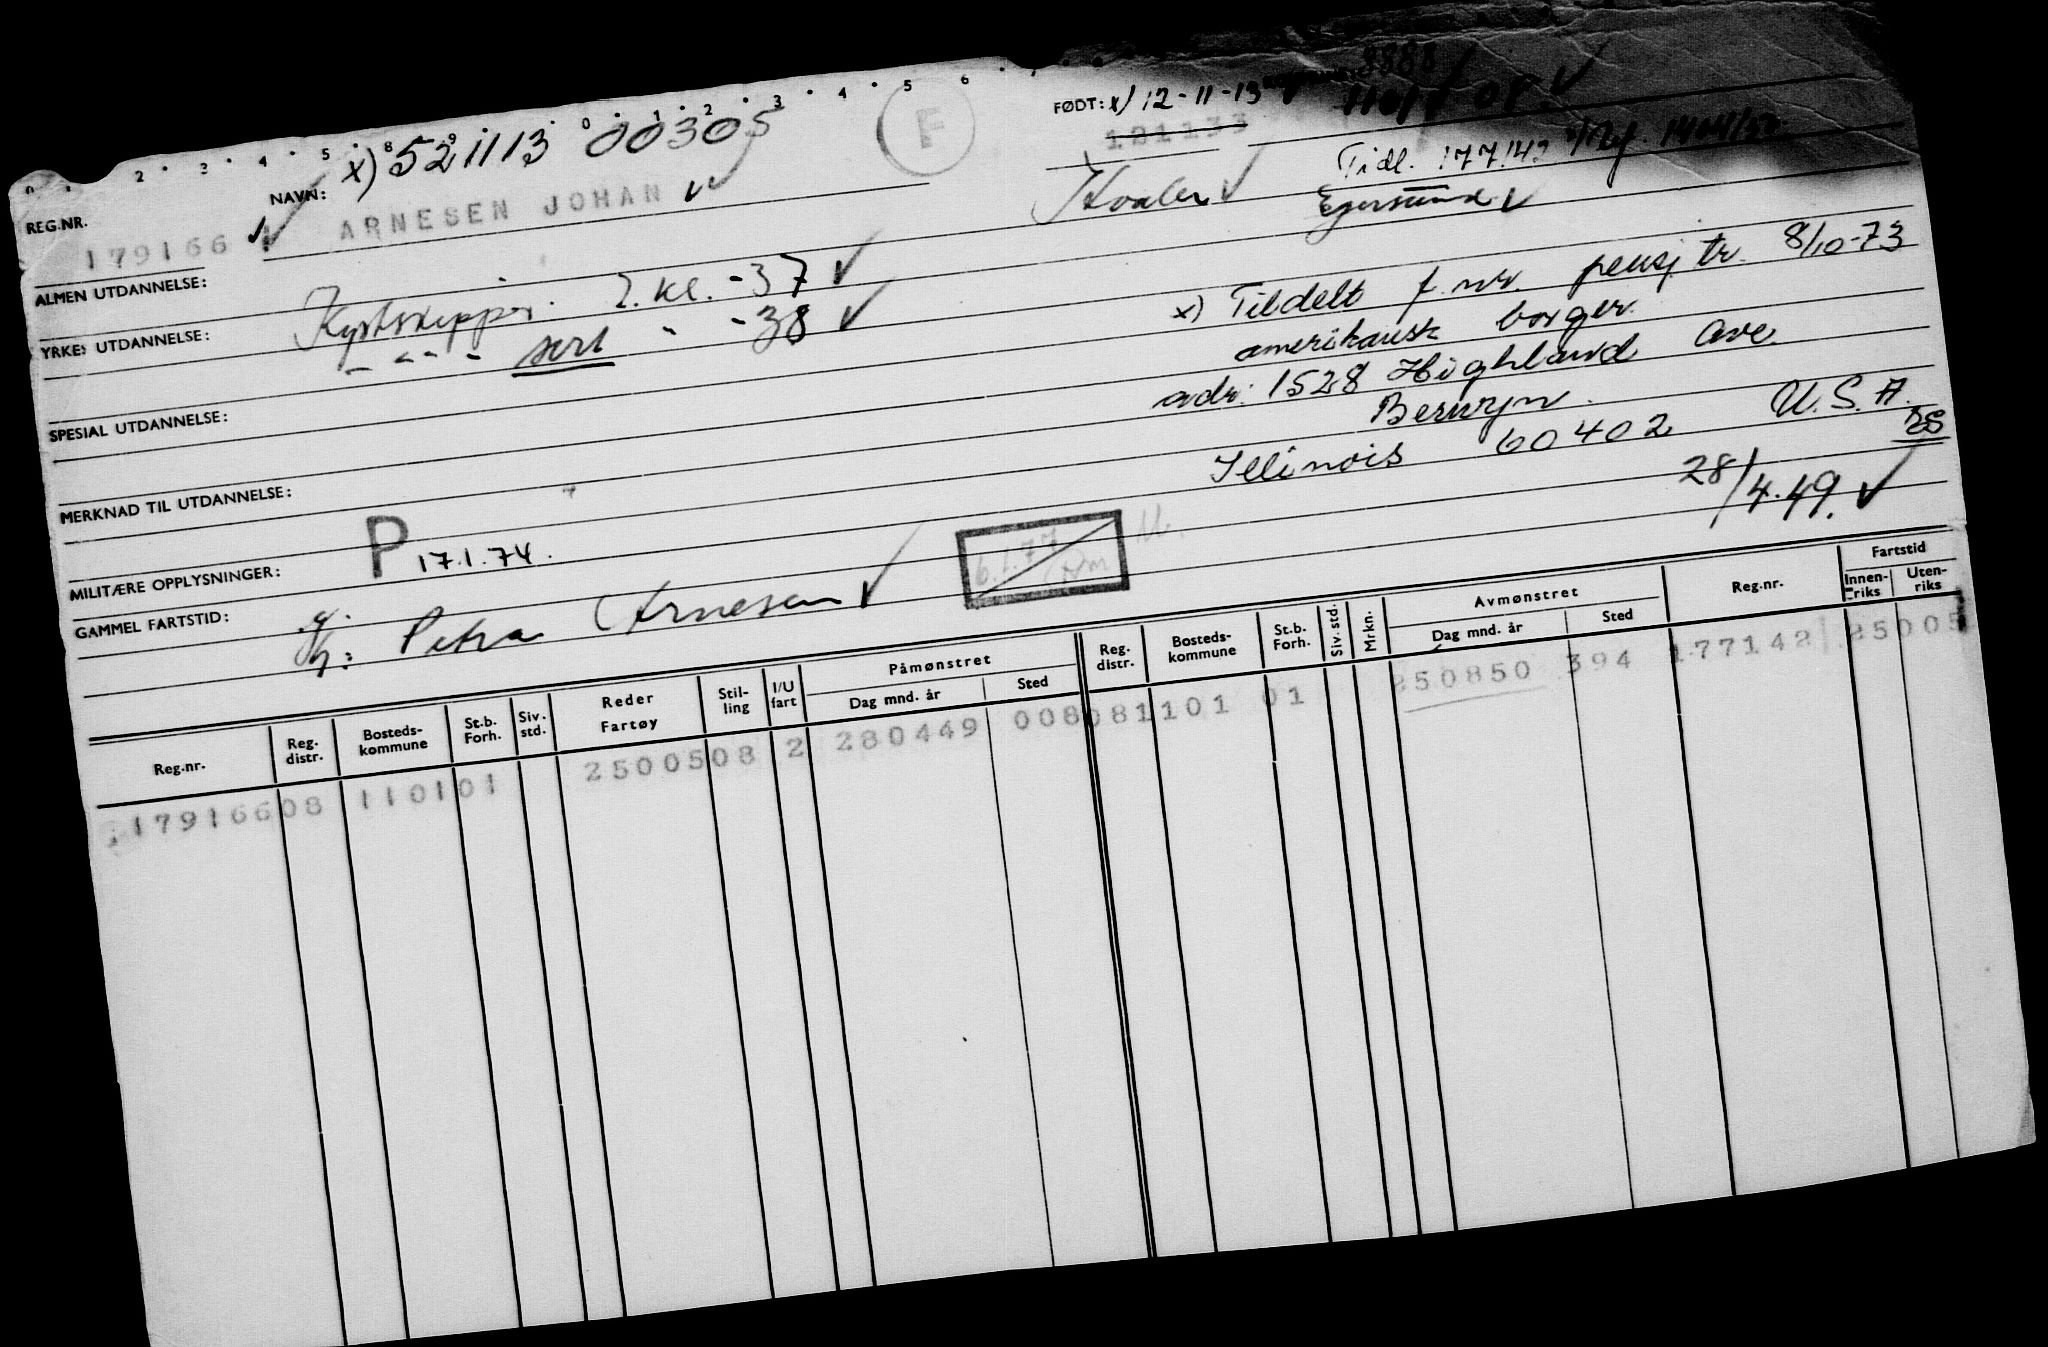 0 . 2 . 3 . 4 . 5 . 8 9 . 0 . 1 . 2 . 3 . 4 . 5 6 .
REG.NR. 179166
NAVN: x) 521113 00305
ARNESEN JOHAN
F
FØDT: x) 12-11-13
121133
Tidl. 177142
Egersund
ALMEN UTDANNELSE:
YRKES UTDANNELSE: Kystskipper. 2. kl. -37
- " - - sert " -38
x) Tildelt f. nr. pensj tr. 8/10-73
amerikansk borger.
adr: 1528 Highland Ave.
Berwyn.
Illinois 60402 U.S.A.
SPESIAL UTDANNELSE:
MERKNAD TIL UTDANNELSE:
28/4.49.
MILITÆRE OPPLYSNINGER: P 17.1.74.
6.1.77
GAMMEL FARTSTID:
Petra Arnesen
Reg.nr. Reg. distr. Bosteds-kommune St.b. Forh. Siv. std. Reder Fartøy Stil-ling I/U fart Påmønstret Dag mnd. år Sted Reg. distr. Bosteds-kommune St.b. Forh. Siv. std. Mrkn. Avmønstret Dag mnd. år Sted Reg.nr. Fartstid Innen-riks Uten-riks
179166 08 1101 01 25005 08 2 280449 008 08 1101 01 250850 394 177142 25005